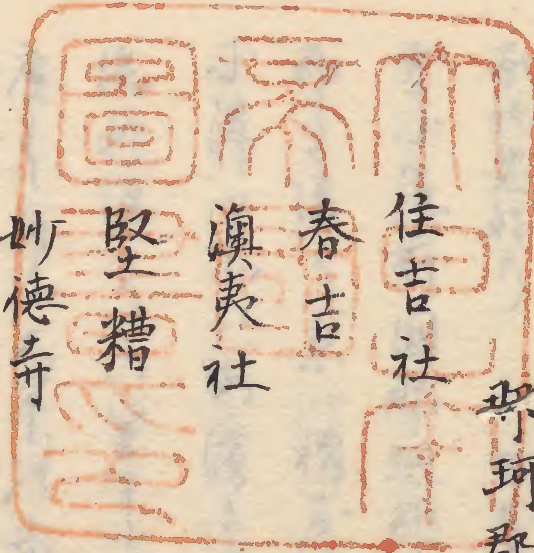 那珂郡
住吉社
春吉
澳夷社
堅糟
妙德寺